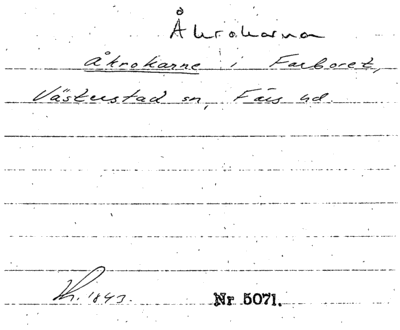 Åkrokarna
åkrokarne i Farboret,
Västerstad sn, Färs hd.
1843. Nr 5071.